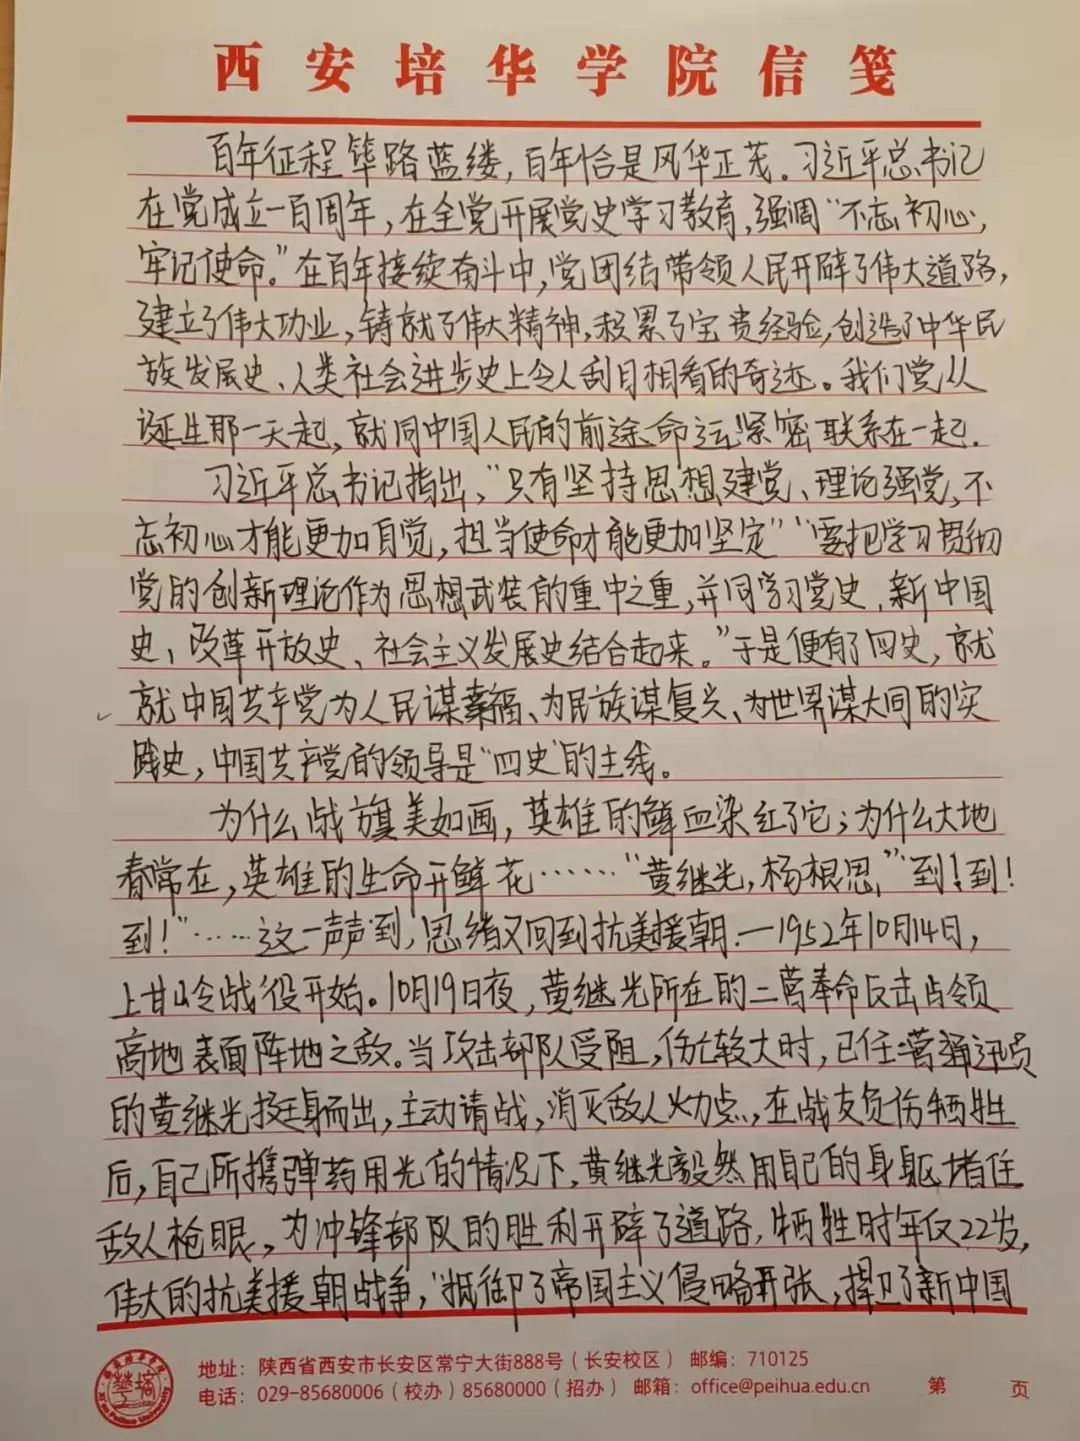 西安培华学院信笺
百年征程筚路蓝缕，百年恰是风华正茂。习近平总书记
在党成立一百周年，在全党开展党史学习教育，强调“不忘初心，
牢记使命。”在百年接续奋斗中，党团结带领人民开辟了伟大道路，
建立了伟大功业，铸就了伟大精神，积累了宝贵经验，创造了中华民
族发展史、人类社会进步史上令人刮目相看的奇迹。我们党从
诞生那一天起，就同中国人民的前途命运紧密联系在一起.
习近平总书记指出，“只有坚持思想建党、理论强党，不
忘初心才能更加自觉，担当使命才能更加坚定”“要把学习贯彻
党的创新理论作为思想武装的重中之重，并同学习党史、新中国
史、改革开放史、社会主义发展史结合起来。”于是便有了四史，就
就中国共产党为人民谋幸福、为民族谋复兴、为世界谋大同的实
践史，中国共产党的领导是“四史”的主线。
为什么战旗美如画，英雄的鲜血染红了它；为什么大地
春常在，英雄的生命开鲜花……“黄继光，杨根思，”“到！到！
到！”……这一声声‘到’，思绪又回到抗美援朝.一1952年10月14日，
上甘岭战役开始。10月19日夜，黄继光所在的二营奉命反击占领
高地表面阵地之敌。当攻击部队受阻，伤亡较大时，已任营通迅员
的黄继光挺身而出，主动请战，消灭敌人火力点，在战友负伤牺牲
后，自己所携弹药用光的情况下，黄继光毅然用自己的身躯堵住
敌人枪眼，为冲锋部队的胜利开辟了道路，牺牲时年仅22岁，
伟大的抗美援朝战争，抵御了帝国主义侵略扩张，捍卫了新中国
地址：陕西省西安市长安区常宁大街888号（长安校区） 邮编：710125
电话：029-85680006（校办）85680000（招办） 邮箱：office@peihua.edu.cn 第 页